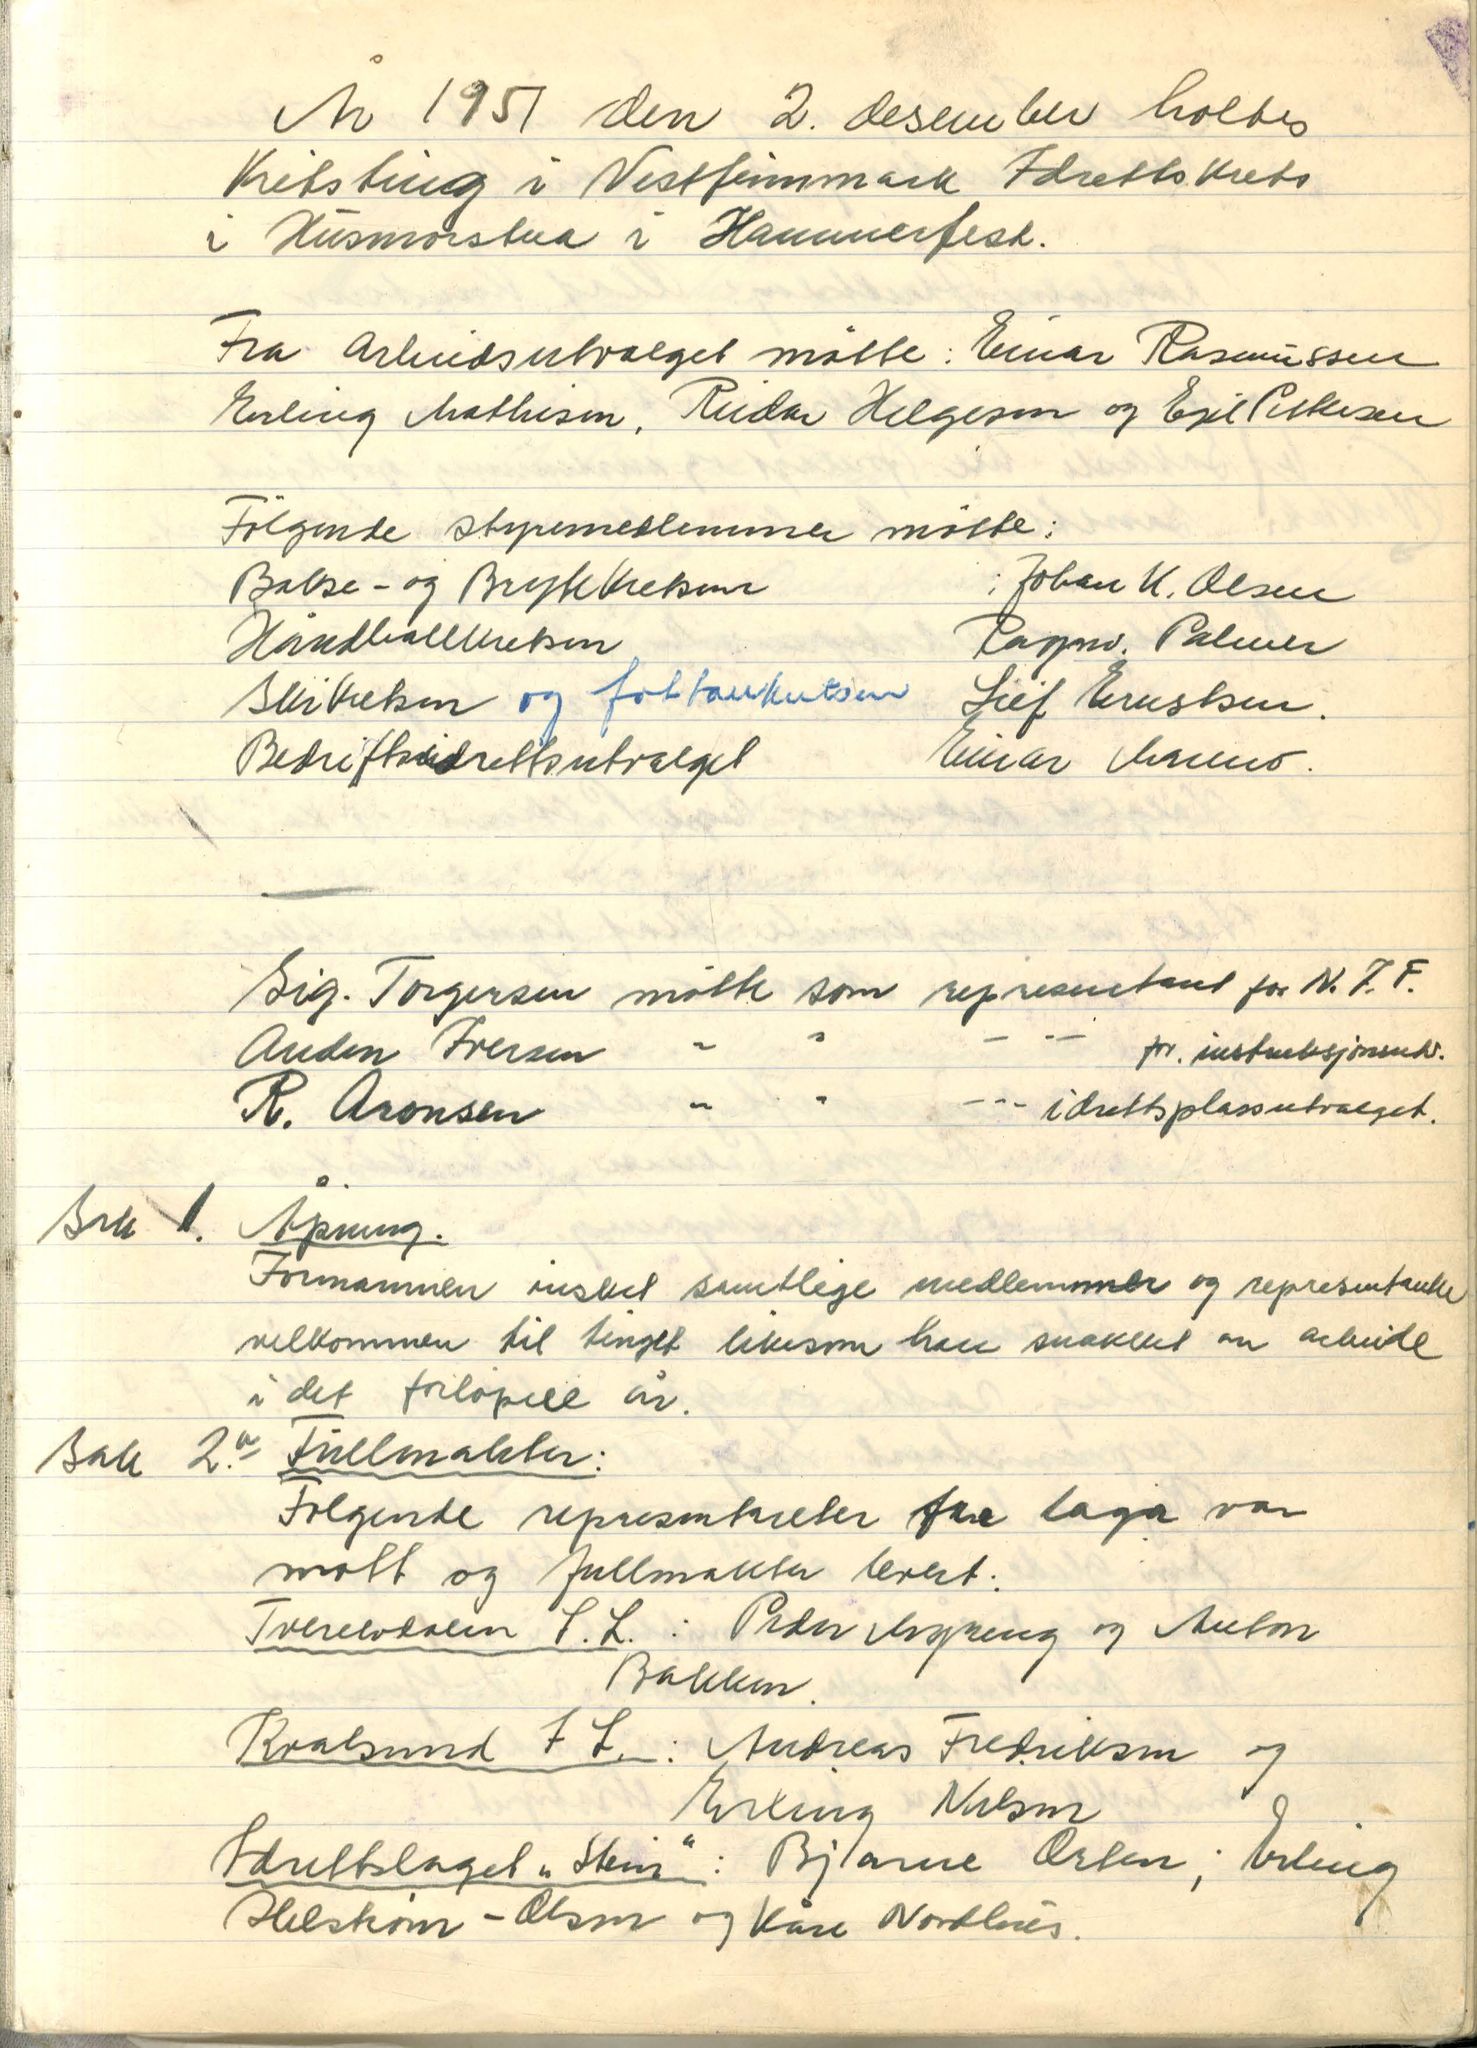 År 1951 den 2. desember holdes
Kretsting i Vestfinnmark Idrettskrets
i Husmorstua i Hammerfest.
Fra Arbeidsutvalget møtte: Einar Rasmussen
Erling Mathisen, Reidar Helgesen og Egil Pettersen
Følgende styremedlemmer møtte:
Bokse- og Brytekretsen : Johan K. Olsen
Håndballkretsen Ragnv. Palmer
Skikretsen og fotballkretsen Leif Ernstsen.
Bedriftsidrettsutvalget Einar
Sig. Torgersen møtte som representant for N.I.F.
Auden Iversen " " - -- for. instruksjonsutv.
R. Aronsen " " --- idrettsplassutvalget.
Sak 1. Åpning.
Formannen ønsket samtlige medlemmer og representanter
velkommen til tinget likesom han snakket om arbeide
i det forløpne år.
Sak 2.a Fullmakter:
Følgende representanter fra laga var
møtt og fullmakter levert:
Tverrelvdalen I.L. : Peder og Anton
Bakken.
Kvalsund I L. : Andreas Fredriksen og
Erling Nilsen
Idrettslaget „Stein" : Bjarne Ørten; Erling
Helstrøm - Olsen og Kåre Nordhus.